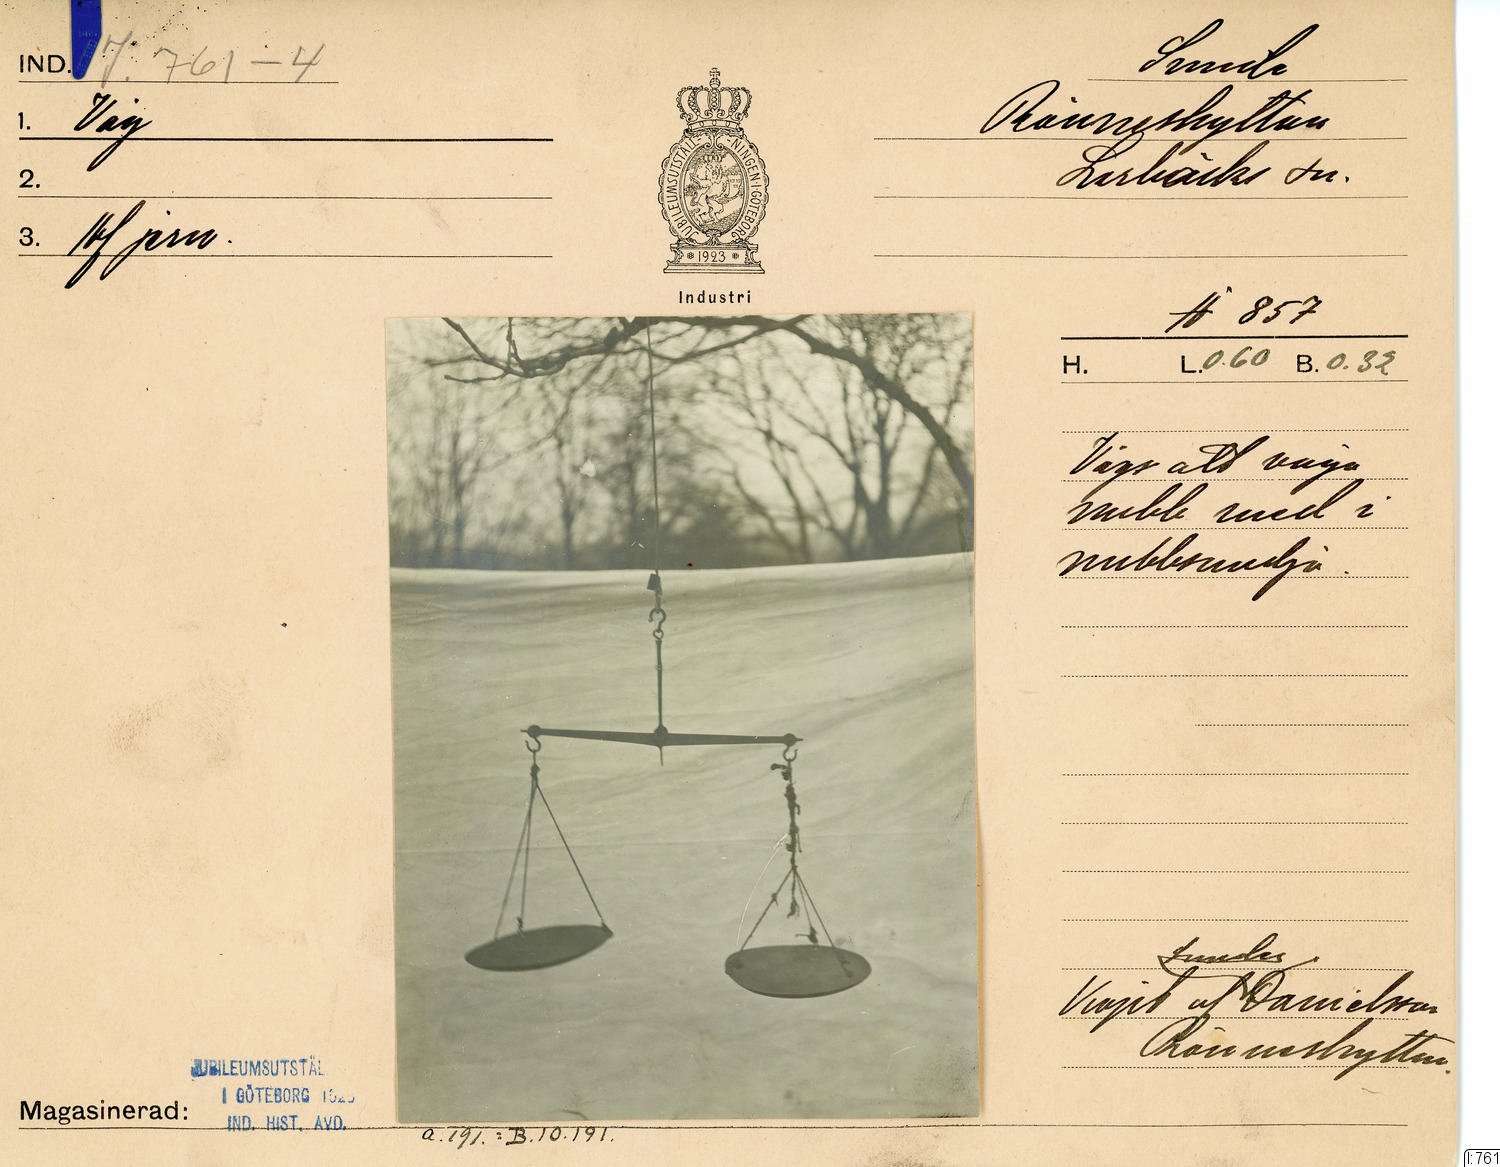 IND. J. 761-4
1. Våg
2.
3. Af jern.
JUBILEUMSUTSTÄLLNINGEN I GÖTEBORG
1923
Industri
Smide
Rönneshyttan
Lerbäcks sn.
N 857
H. L. 0.60 B. 0.32
Våg att väga
nubb med i
nubbsmedja.
smeden
Köpt af Danielsson
Rönneshyttan.
JUBILEUMSUTSTÄL
I GÖTEBORG 1923
IND. HIST. AVD.
Magasinerad:
a.191.:B.10.191.
I:761